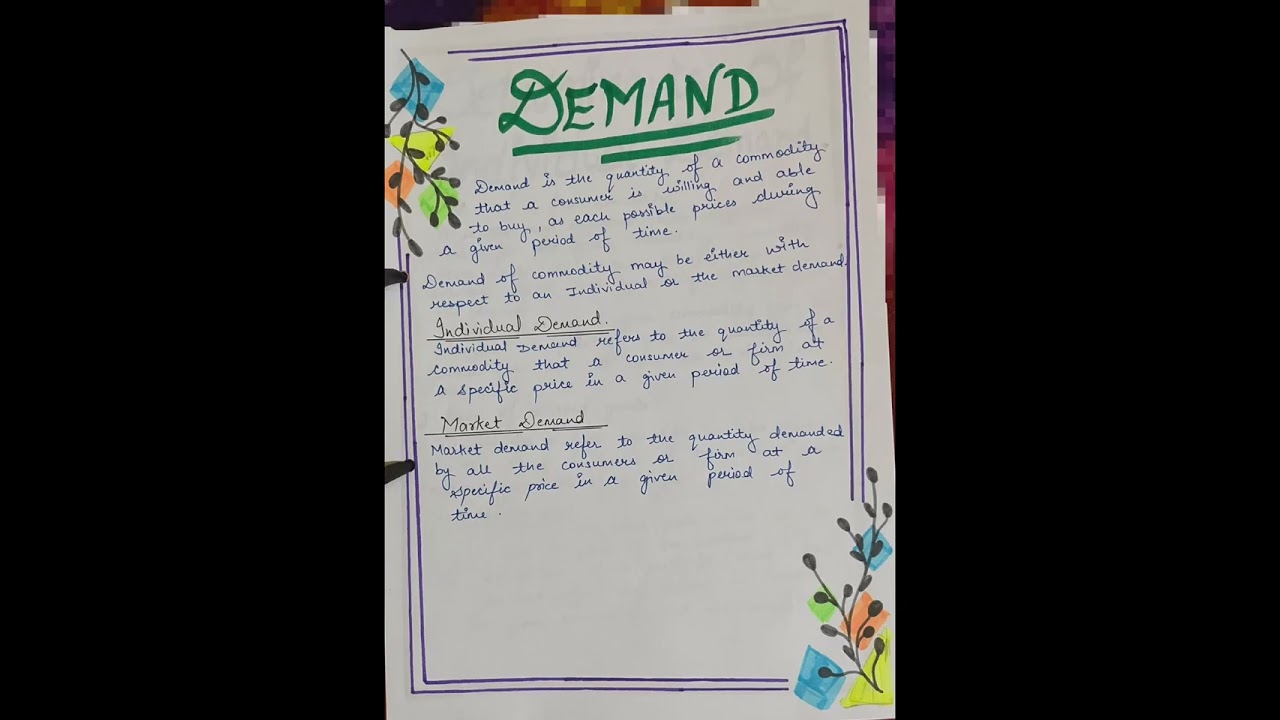 DEMAND
Demand is the quantity of a commodity
that a consumer is willing and able
to buy, as each possible prices during
a given period of time.
Demand of commodity may be either with
respect to an Individual or the market demand.
Individual Demand.
Individual Demand refers to the quantity of a
commodity that a consumer or firm at
a specific price in a given period of time.
Market Demand
Market demand refer to the quantity demanded
by all the consumers or firm at a
specific price in a given period of
time.